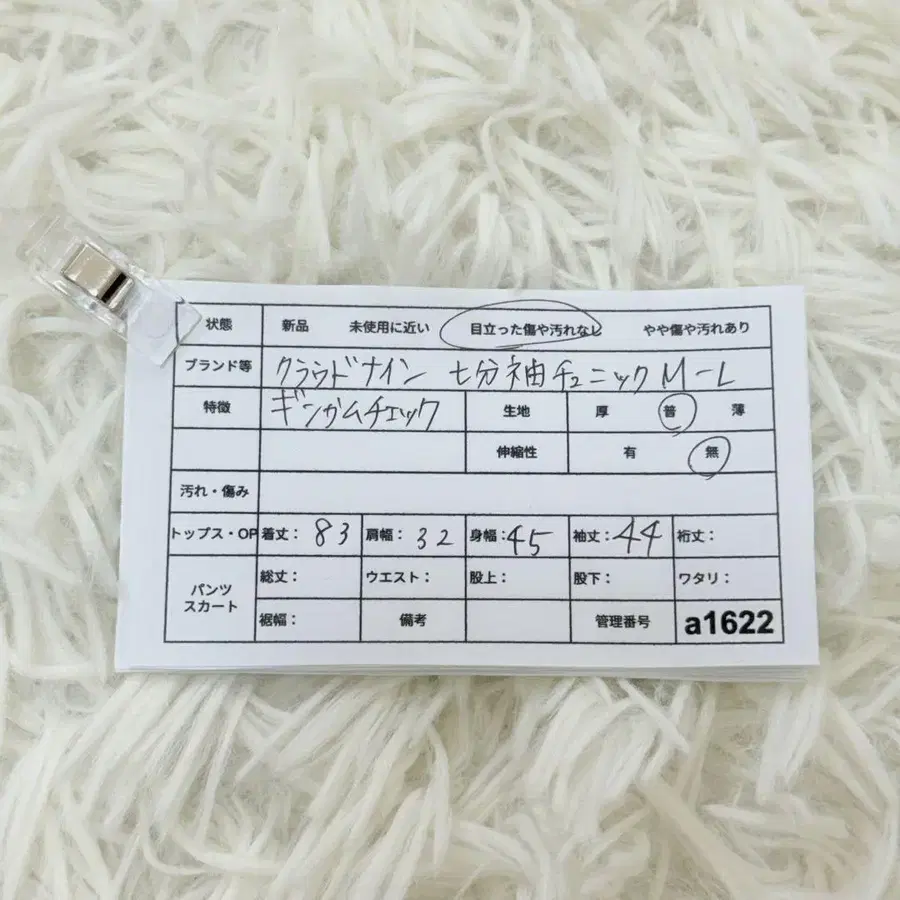 状態 新品 未使用に近い 目立った傷や汚れなし やや傷や汚れあり
ブランド等 クラウドナイン 七分袖チュニック M-L
特徴 ギンガムチェック 生地 厚 普 薄
伸縮性 有 無
汚れ・傷み
トップス・OP 着丈: 83 肩幅: 32 身幅: 45 袖丈: 44 裄丈:
パンツ スカート 総丈: ウエスト: 股上: 股下: ワタリ:
裾幅: 備考 管理番号 a1622